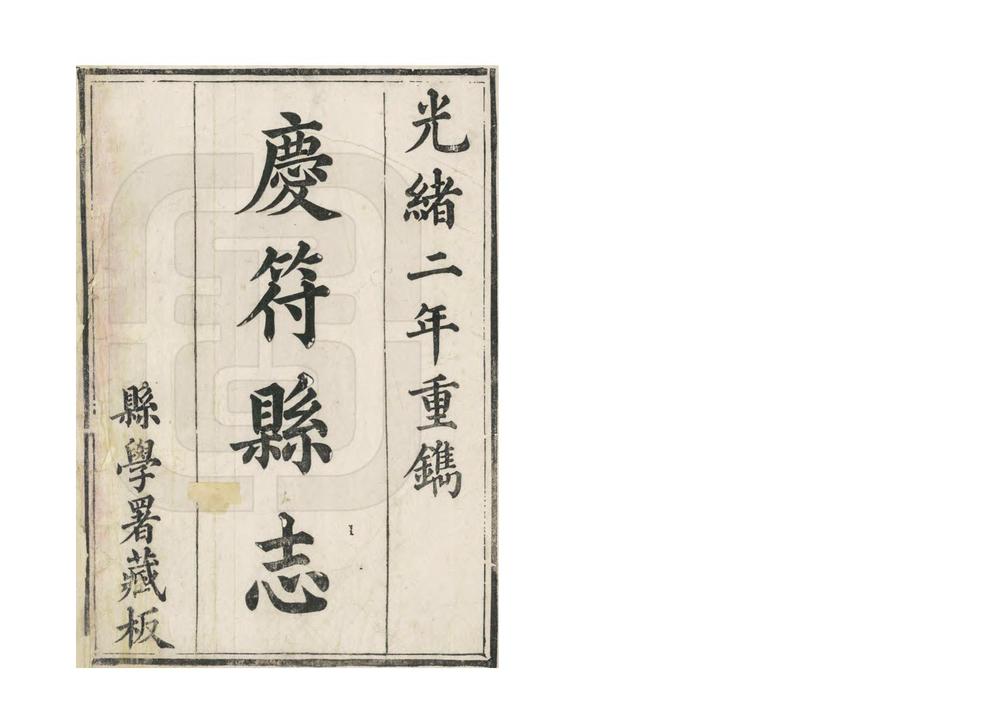 光緒二年重鐫
慶符縣志
縣學署藏板